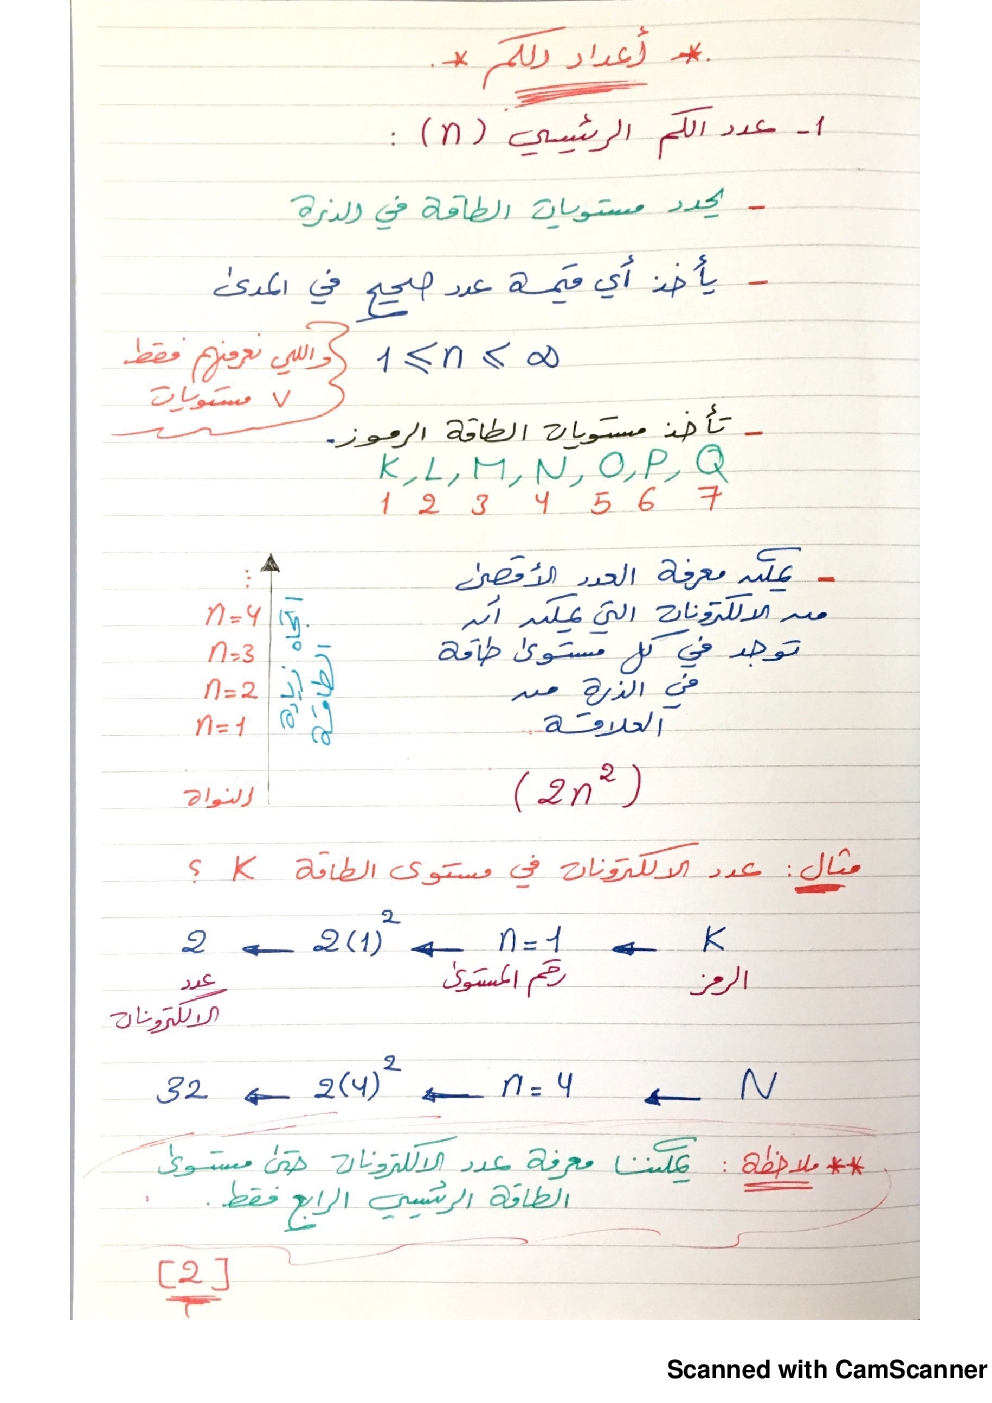 * أعداد الكم *
1- عدد الكم الرئيسي (n) :
- يحدد مستويات الطاقة في الذرة
- يأخذ أي قيمة عدد صحيح في المدى
1 ≤ n ≤ ∞
واللي نعرفهم فقط
٧ مستويات
- تأخذ مستويات الطاقة الرموز.
K, L, M, N, O, P, Q
1 2 3 4 5 6 7
- يمكن معرفة العدد الأقصى
من الالكترونات التي يمكن أن
توجد في كل مستوى طاقة
في الذرة من
العلاقة
(2n²)
:
n=4
n=3
n=2
n=1
النواة
اتجاه زيادة
الطاقة
مثال : عدد الالكترونات في مستوى الطاقة K ؟
K ← n=1 ← 2(1)² ← 2
الرمز رقم المستوى عدد
الالكترونات
N ← n=4 ← 2(4)² ← 32
** ملاحظة : يمكننا معرفة عدد الالكترونات حتى مستوى
الطاقة الرئيسي الرابع فقط .
[2]
Scanned with CamScanner